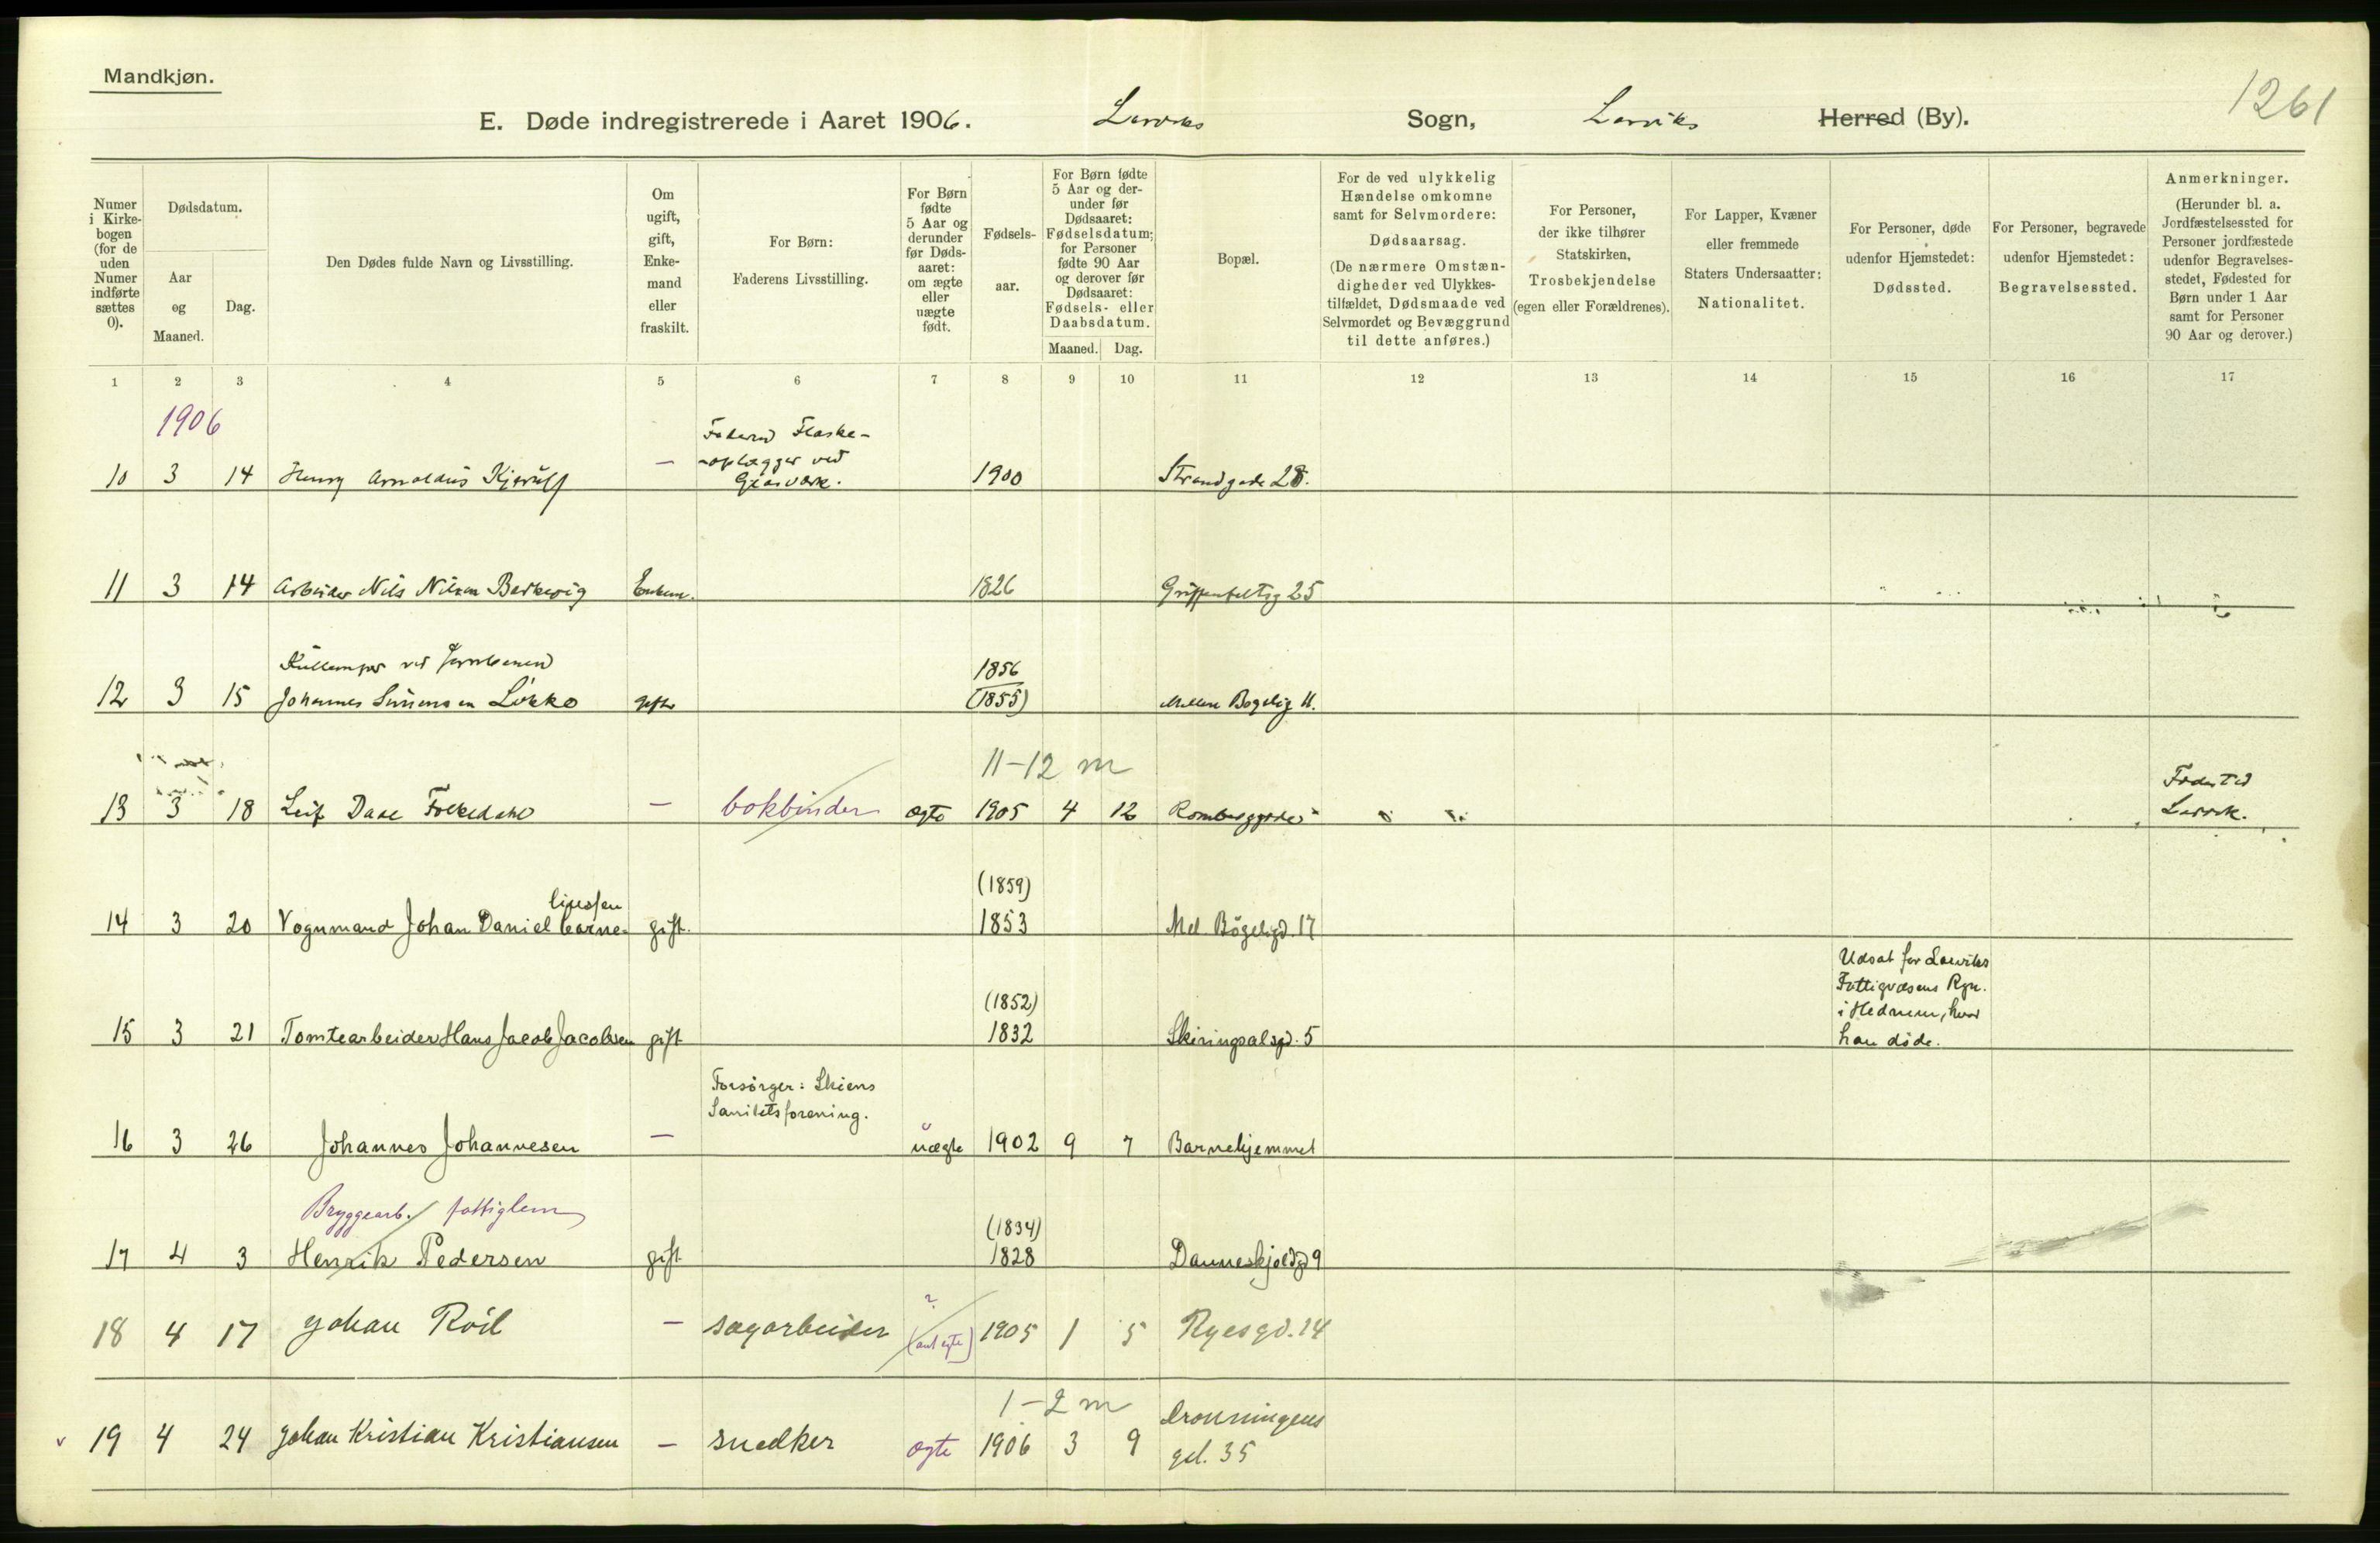 Mandkjøn.
1261
E. Døde indregistrerede i Aaret 1906. Larviks Sogn, Larviks Herred (By).
Numer i Kirkebogen (for de uden Numer indførte sættes 0).
Dødsdatum.
Aar og Maaned.
Dag.
Den Dødes fulde Navn og Livsstilling.
Om ugift, gift, Enkemand eller fraskilt.
For Børn:
Faderens Livsstilling.
For Børn fødte 5 Aar og derunder før Dødsaaret: om ægte eller uægte født.
Fødselsaar.
For Børn fødte 5 Aar og derunder før Dødsaaret: Fødselsdatum; for Personer fødte 90 Aar og derover før Dødsaaret: Fødsels- eller Daabsdatum.
Maaned. Dag.
Bopæl.
For de ved ulykkelig Hændelse omkomne samt for Selvmordere:
Dødsaarsag.
(De nærmere Omstændigheder ved Ulykkestilfældet, Dødsmaade ved Selvmordet og Bevæggrund til dette anføres.)
For Personer, der ikke tilhører Statskirken,
Trosbekjendelse
(egen eller Forældrenes).
For Lapper, Kvæner eller fremmede Staters Undersaatter:
Nationalitet.
For Personer, døde udenfor Hjemstedet:
Dødssted.
For Personer, begravede udenfor Hjemstedet:
Begravelsessted.
Anmerkninger.
(Herunder bl. a. Jordfæstelsessted for Personer jordfæstede udenfor Begravelsesstedet, Fødested for Børn under 1 Aar samt for Personer 90 Aar og derover.)
1 2 3 4 5 6 7 8 9 10 11 12 13 14 15 16 17
1906
Flaske-
oplægger ved
10 3 14 Henry Arnoldus Kjerulf — Glasværk. 1900 Strandgade 28.
11 3 14 Arbeider Nils Nilsen Berkevig Enkem. 1826 Griffenfeltsg 25
ved Jernbanen
1856
12 3 15 Johannes Simensen Løkke gift (1855) Mellem Bøgelig 11.
11-12 m
Fødested
13 3 18 Leif Dahl Folkedahl — bokbinder ægte 1905 4 12 Larvik.
liussen
(1859)
14 3 20 Vognmand Johan Daniel Corne- gift. 1853 Mel. Bøgeligd. 17
Udsat for Larviks
Fattigvæsens Rgn.
i Hedrum, hvor
(1852)
15 3 21 Tomtearbeider Hans Jacob Jacobsen gift 1832 Skiringsalsgd. 5 han døde.
Forsørger: Skiens
Sanitetsforening.
16 3 26 Johannes Johannesen — uægte 1902 9 7 Barnehjemmet
Bryggearb. fattiglem
(1834)
17 4 3 Henrik Pedersen gift 1828 Danneskjoldgd 9
?
18 4 17 Johan Röil — sagarbeider (ant. egte) 1905 1 5 Ryesgd. 14
1-2 m
Dronningens
v 19 4 24 Johan Kristian Kristiansen — snedker ægte 1906 3 9 gd. 35